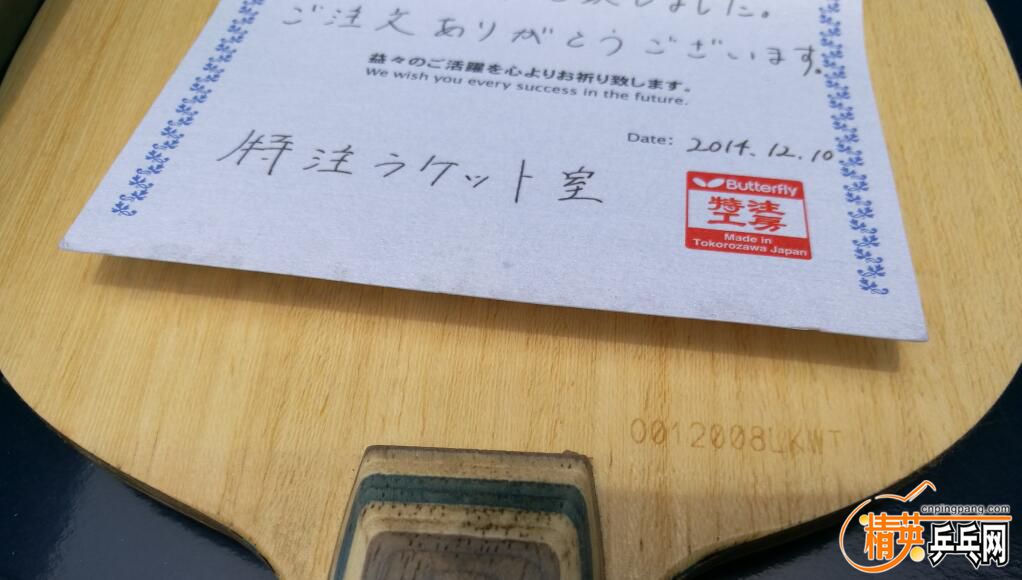 しました。
ご注文ありがとうございます。
益々のご活躍を心よりお祈り致します。
We wish you every success in the future.
Date: 2014.12.10
特注ラケット室
Butterfly
特注
工房
Made in
Tokorozawa Japan
0012008LKWT
cnpingpang.com
精英乒乓网